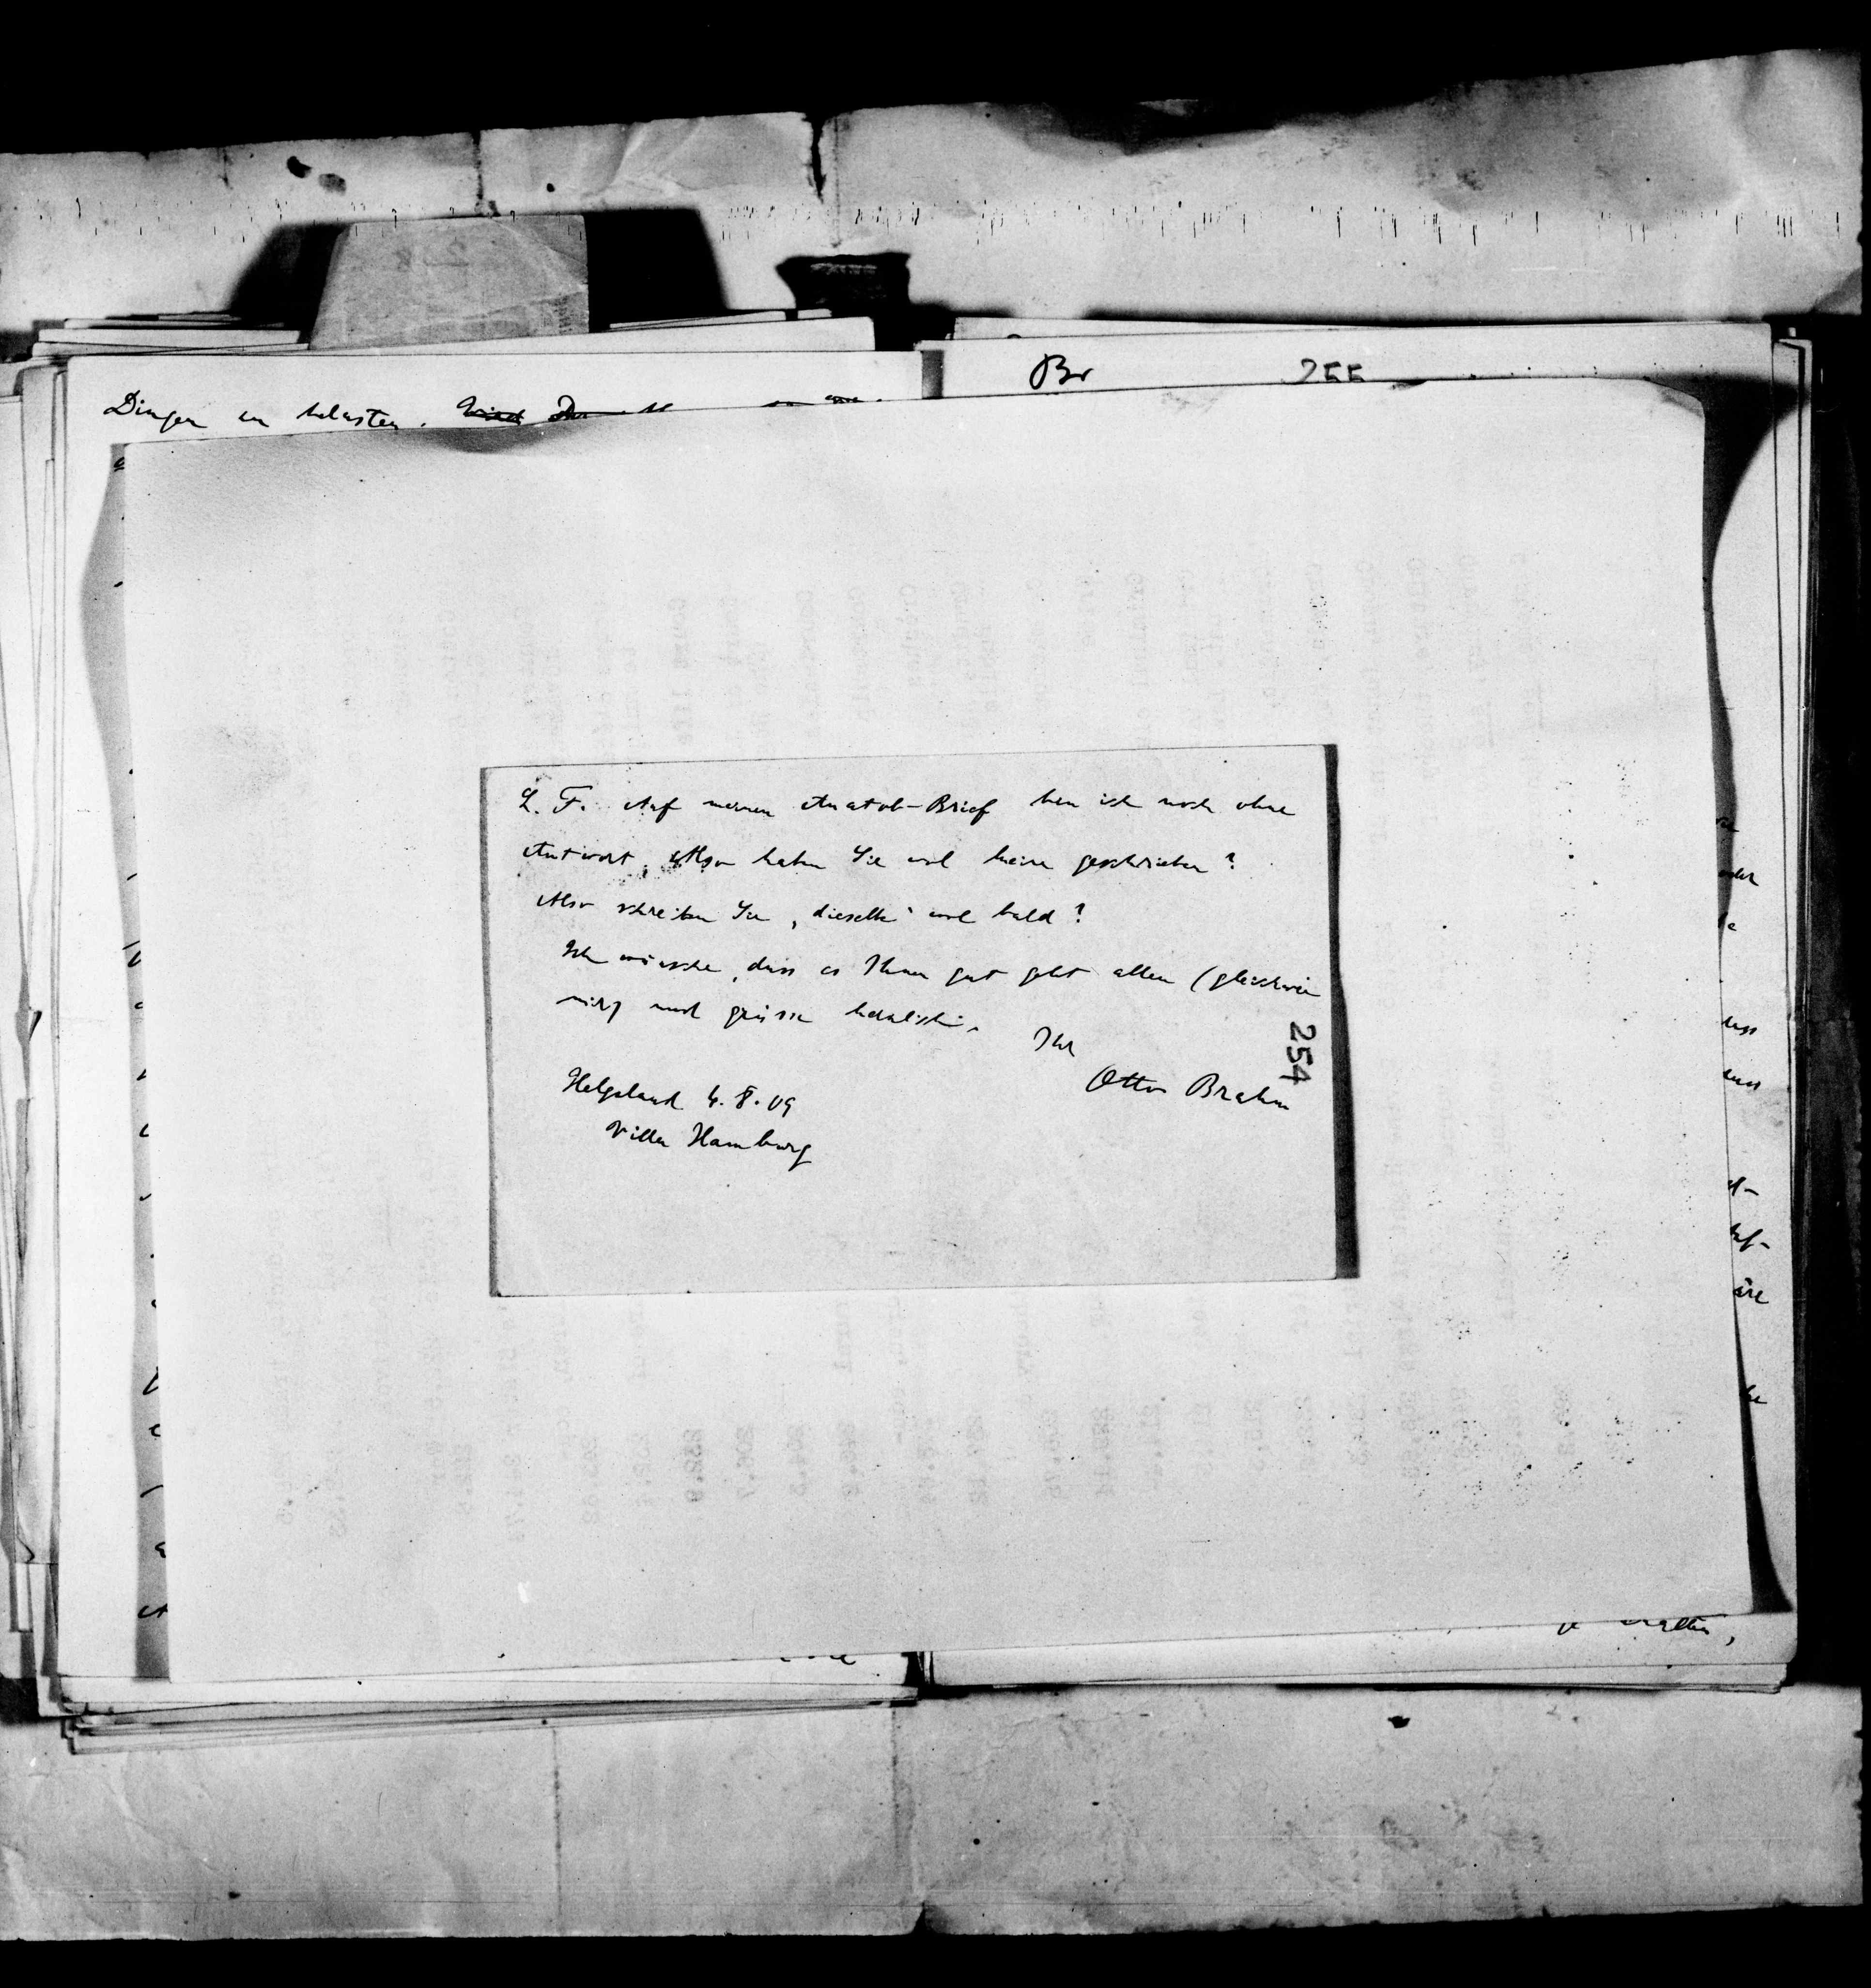 Br 255
Dingen zu belasten.
L. F. Auf meinen Anatol-Brief bin ich noch ohne
Antwort, Also haben Sie wol keine geschrieben?
Also schreiben Sie „dieselbe“ wol bald?
Ich wünsche, dass es Ihnen gut geht allen (gleichwie
mir) und grüsse herzlichst.
Ihr
Otto Brahm
254
Helgoland 4. 8. 09
Villa Hamburg